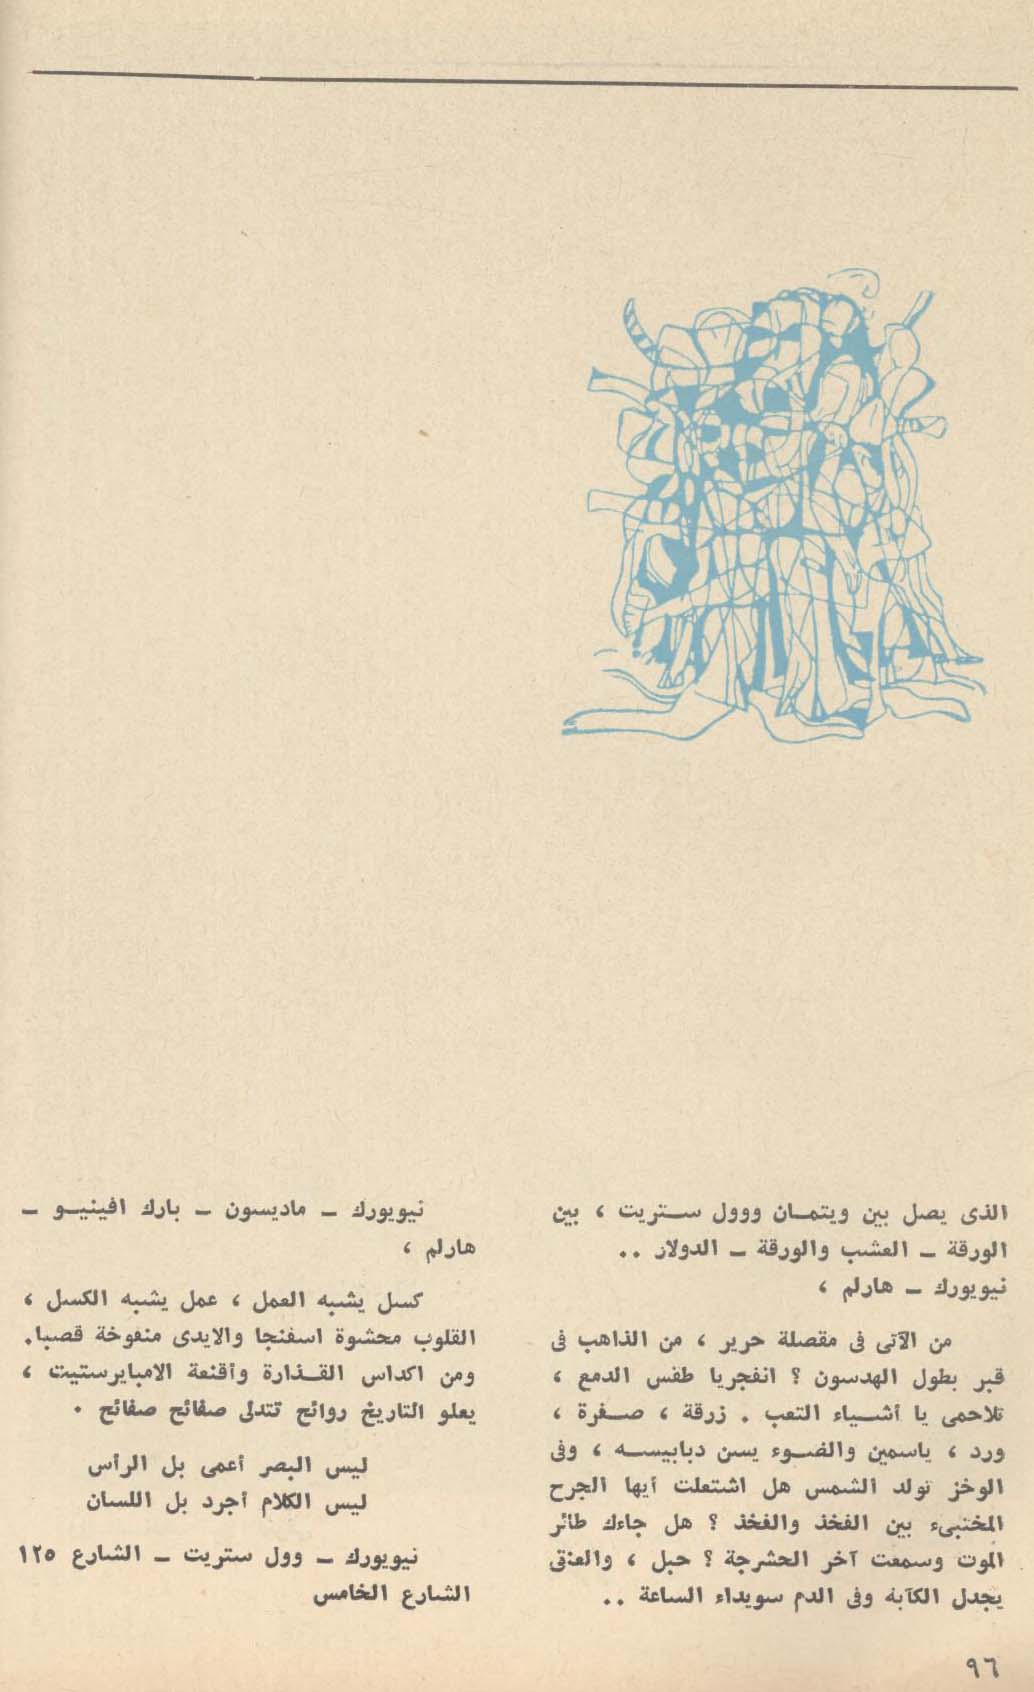 الذى يصل بين ويتمــان وووول ســتريت ، بين
الورقة ــ العشب والورقة ــ الدولار ..
نيويورك ــ هارلم ،
من الآتى فى مقصلة حرير ، من الذاهب فى
قبر بطول الهدسون ؟ انفجريا طقس الدمع ،
تلاحمى يا أشــياء التعب . زرقة ، صــفرة ،
ورد ، ياسمين والضــوء يسن دبابيســه ، وفى
الوخز تولد الشمس هل اشتعلت أيها الجرح
المختبىء بين الفخذ والفخذ ؟ هل جاءك طائر
الموت وسمعت آخر الحشرجة ؟ حبل ، والعنق
يجدل الكآبه وفى الدم سويداء الساعة ..
نيويورك ــ ماديسون ــ بارك افينيــو ــ
هارلم ،
كسل يشبه العمل ، عمل يشبه الكسل ،
القلوب محشوة اسفنجا والايدى منفوخة قصبا.
ومن اكداس القــذارة وأقنعة الامبايرستيت ،
يعلو التاريخ روائح تتدلى صفائح صفائح .
ليس البصر أعمى بل الرأس
ليس الكلام أجرد بل اللسان
نيويورك ــ وول ستريت ــ الشارع ١٢٥
الشارع الخامس
٩٦